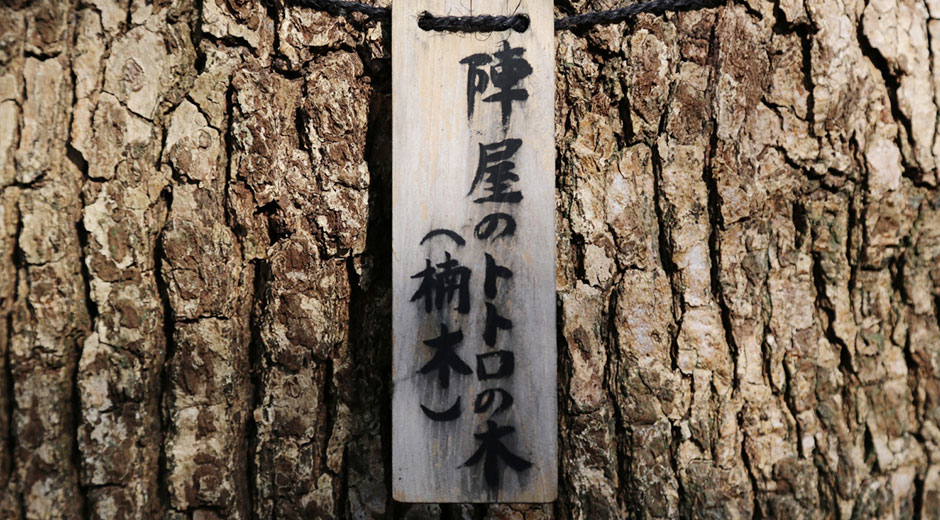 陣屋のトトロの木
(楠木)